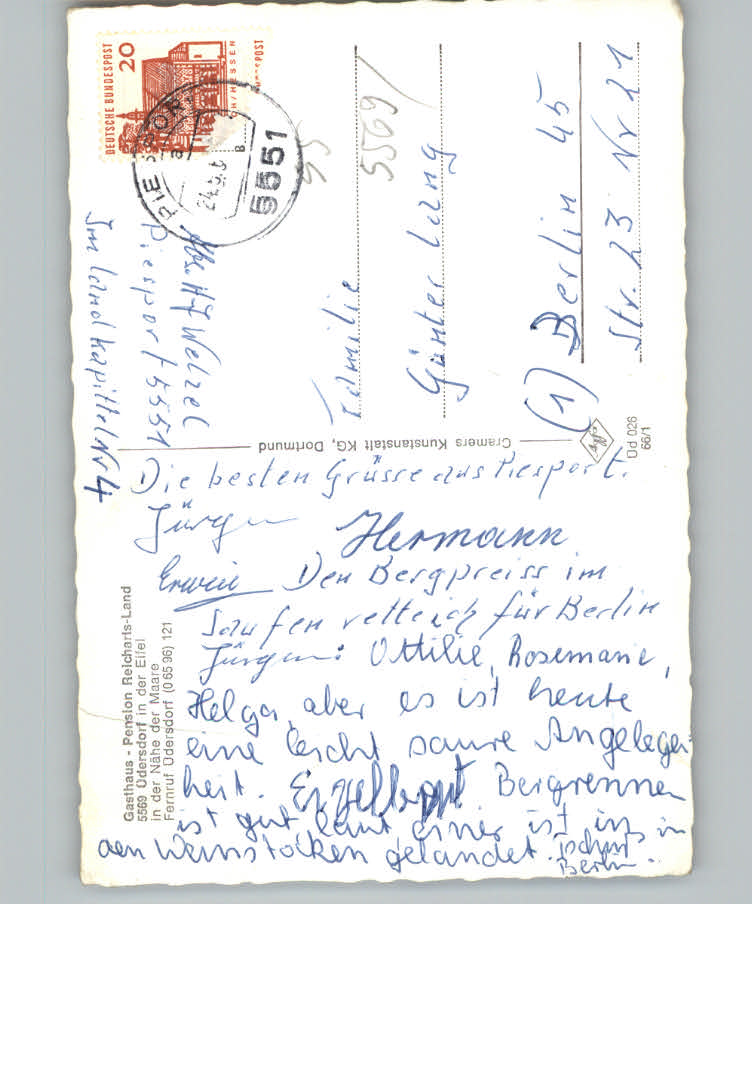 DEUTSCHE BUNDESPOST
20
5551
Abs. H J Welzel
Piesport 5551
Im Landkapittel Nr 4
5569
Familie
Günter Lang
(1) Berlin 45
Str. 23 Nr 21
Cramers Kunstanstalt KG, Dortmund
Üd 026
66/1
Die besten Grüsse aus Piesport.
Jürgen
Hermann
Erwin Den Bergpreiss im
Saufen rette ich für Berlin
Jürgen: Ottilie, Rosemarie,
Helga, aber es ist heute
eine leicht saure Angelegen-
heit. Bergrennen
ist gut einer ist in
den Weinstöcken gelandet.
Berlin.
Gasthaus - Pension Reicharts-Land
5569 Üdersdorf in der Eifel
in der Nähe der Maare
Fernruf Üdersdorf (0 65 96) 121